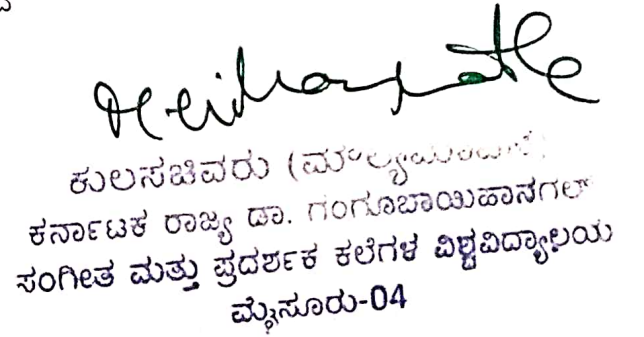 ಕುಲಸಚಿವರು (ಮೌಲ್ಯಮಾಪನ)
ಕರ್ನಾಟಕ ರಾಜ್ಯ ಡಾ. ಗಂಗೂಬಾಯಿಹಾನಗಲ್
ಸಂಗೀತ ಮತ್ತು ಪ್ರದರ್ಶಕ ಕಲೆಗಳ ವಿಶ್ವವಿದ್ಯಾಲಯ
ಮೈಸೂರು-04